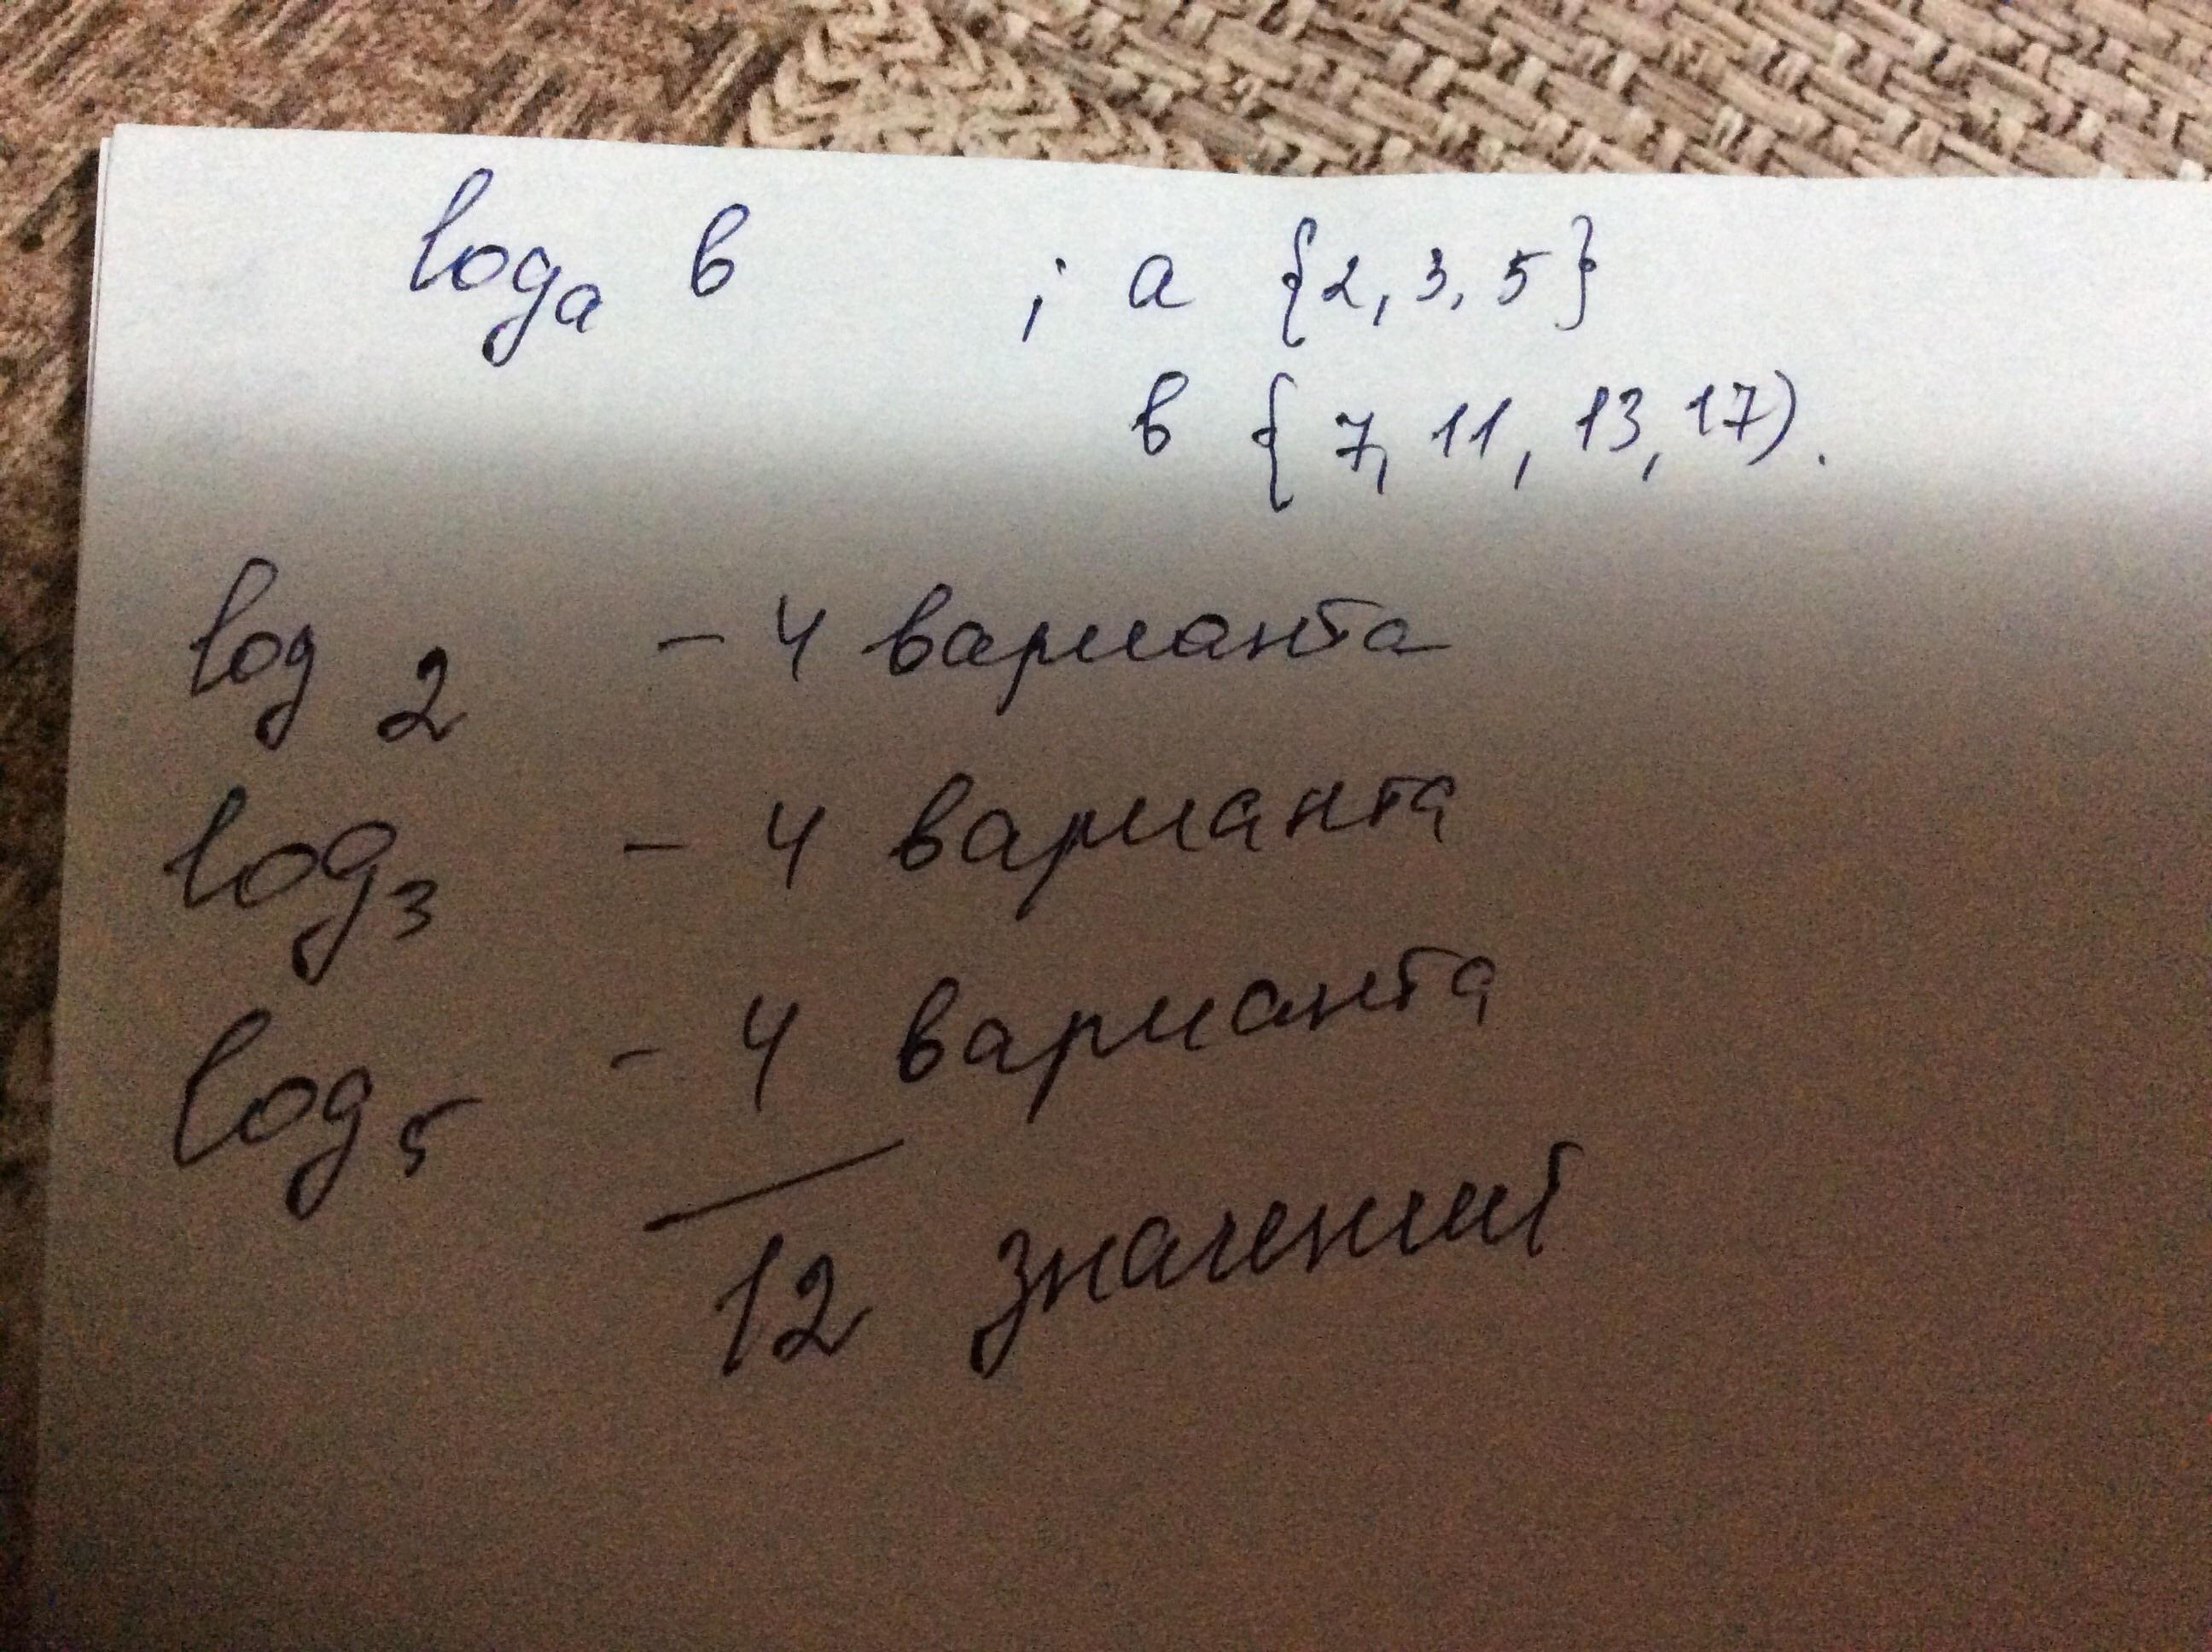 logₐ в ; а {2, 3, 5}
в {7, 11, 13, 17).
log₂ - 4 варианта
log₃ - 4 варианта
log₅ - 4 варианта
12 значений